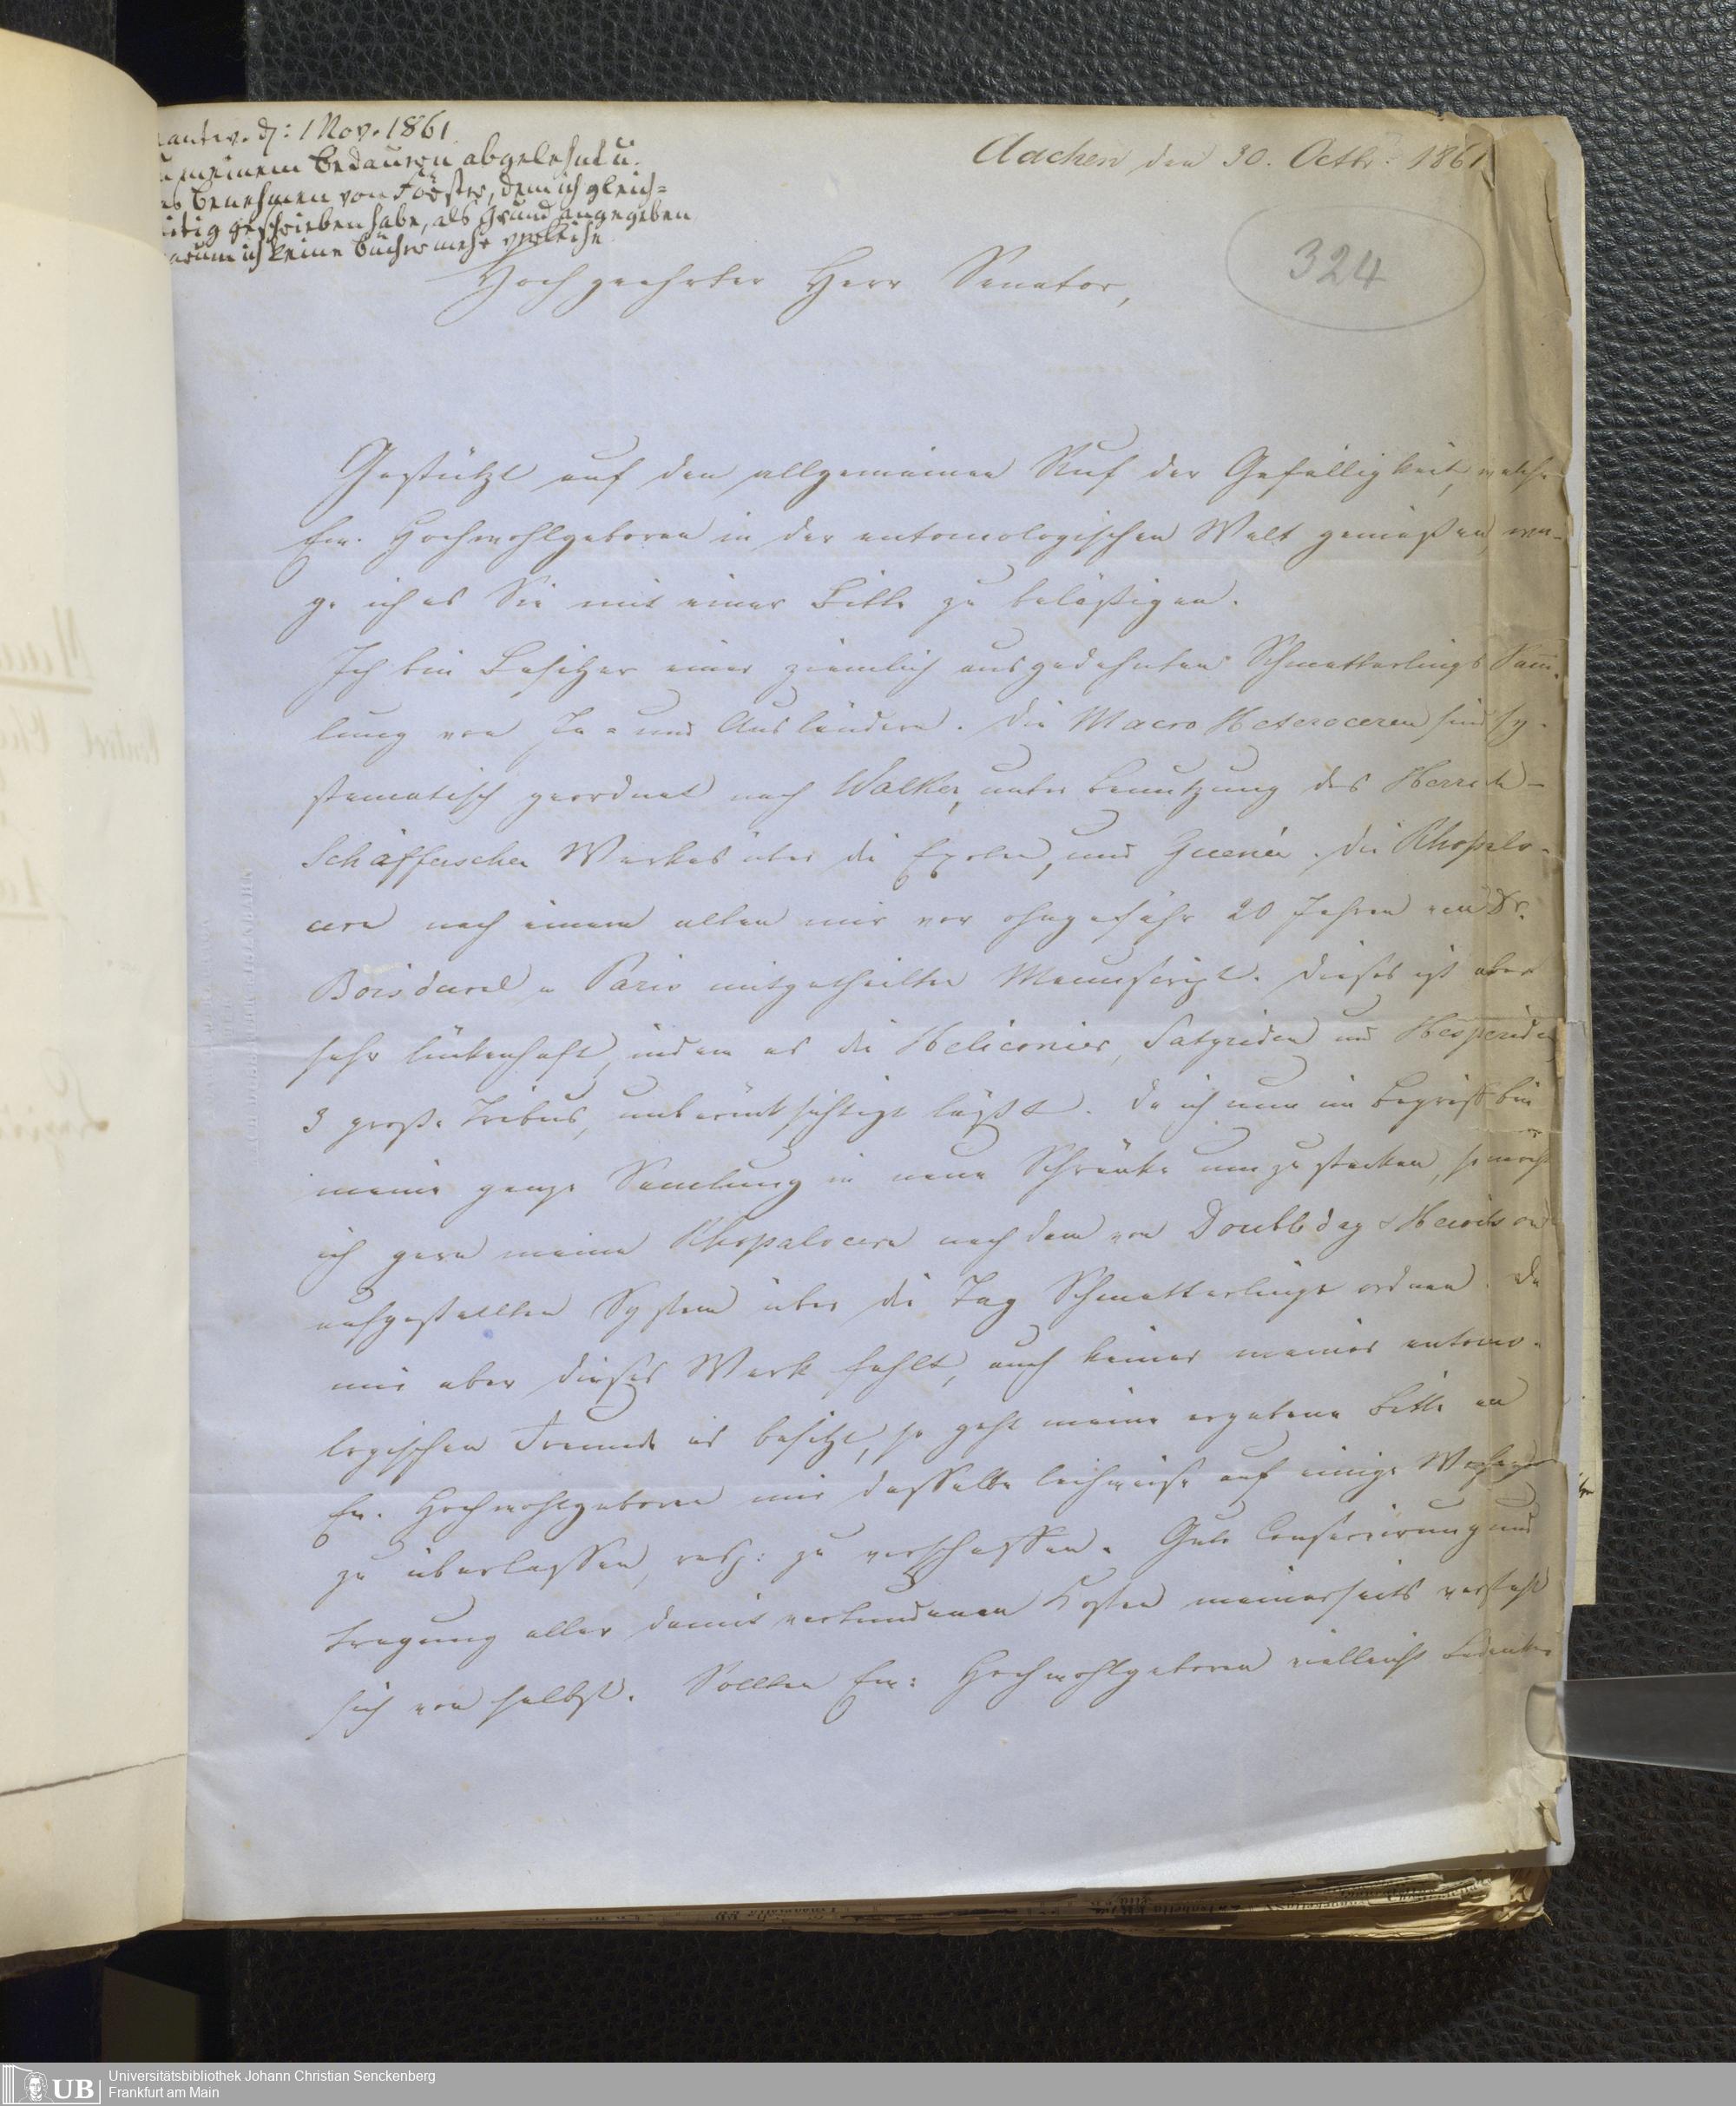 antw. d: 1 Nov. 1861.
meinem Bedauern abgelehnt u.
Benehmen von Förster, dem ich gleich=
itig geschrieben habe, als Grund angegeben
arum ich keine Bücher mehr verleihe
Aachen den 30. Octbr. 1861
324
Hochgeehrter Herr Senator,
Gestützt auf den allgemeinen Ruf der Gefälligkeit, welche
Ew. Hochwohlgeboren in der entomologischen Welt genießen, wa-
ge ich es Sie mit einer Bitte zu belästigen.
Ich bin Besitzer einer ziemlich ausgedehnten Schmetterlings Sam̅-
lung von In- und Ausländern. Die Macro Heteroceren sind sy-
stematisch geordnet nach Walker, unter Benutzung des Herrich-
Schäfferschen Werkes über die Exoten, und Guenée. Die Rhopalo-
ceren nach einem alten mir vor ohngefähr 20 Jahren von Dr.
Boisduval in Paris mitgetheilten Manuscript. Dieses ist aber
sehr lückenhaft, indem es die Heliconier, Satyriden und Hesperiden
3 große Tribus, unberücksichtigt läßt. Da ich nun im Begriff bin
meine ganze Samlung in neue Schränke umzustecken, so möcht
ich gern meine Rhopaloceren nach dem von Doubleday & Hewitson
aufgestellten System über die Tag Schmetterlinge ordnen. Da
mir aber dieses Werk fehlt, auch keiner meiner entomo-
logischen Freunde es besitzt, so geht meine ergebene Bitte an
Ew. Hochwohlgeboren mir dasselbe leihweise auf einige Wochen
zu überlassen, resp: zu verschaffen. Gute Conservirung und
Tragung aller damit verbundenen Kosten meinerseits versteht
sich von selbst. Sollten Ew: Hochwohlgeboren vielleicht Bedenken
UB
Universitätsbibliothek Johann Christian Senckenberg
Frankfurt am Main